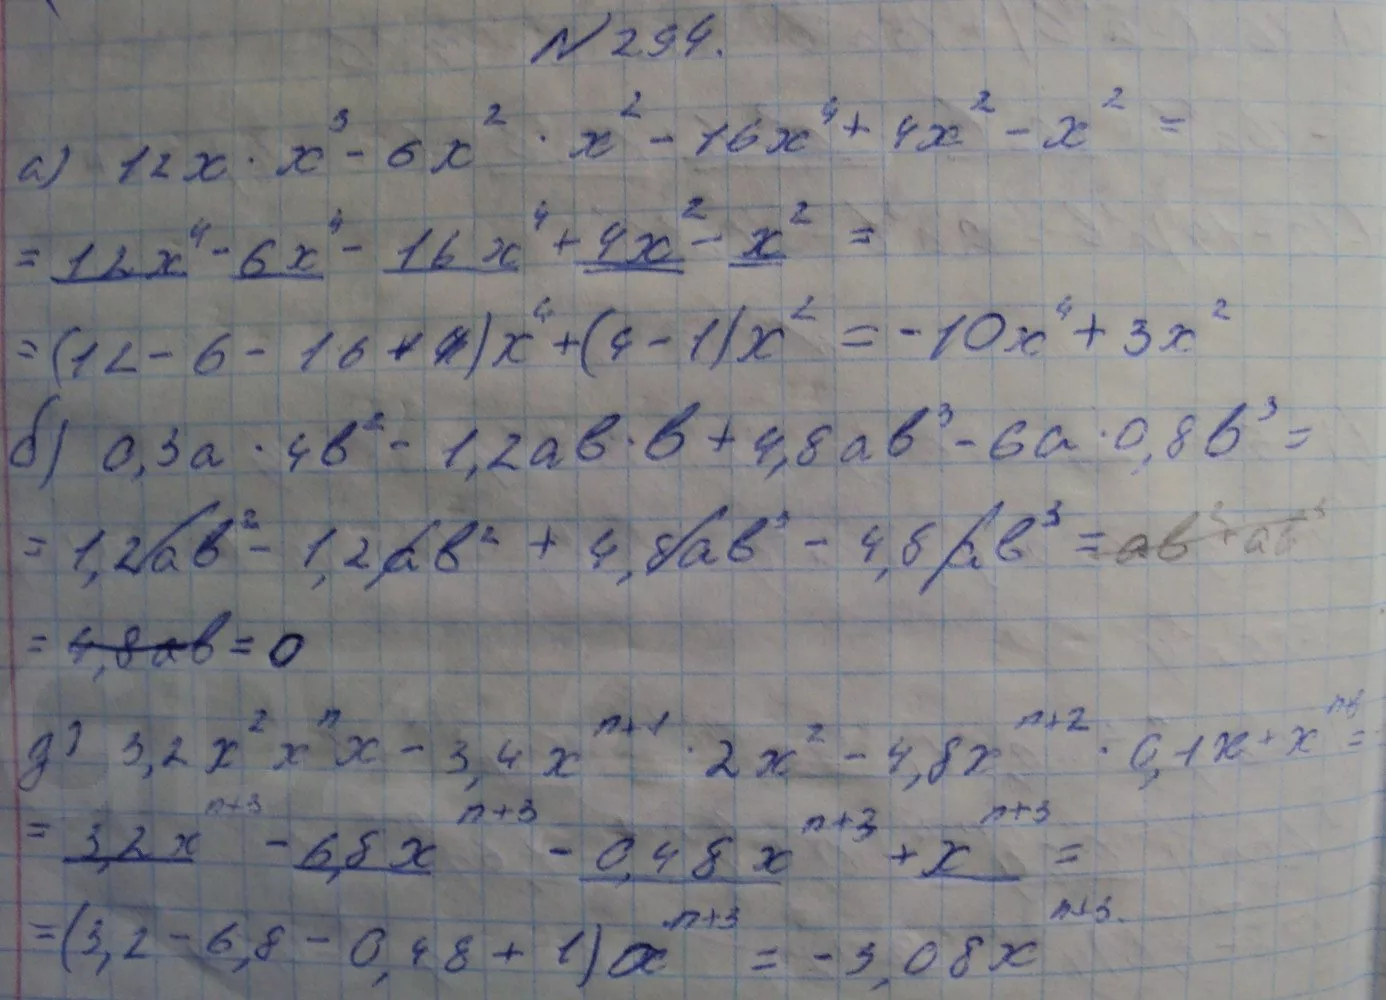 № 294.
а) 12x · x³ - 6x² · x² - 16x⁴ + 4x² - x² =
= 12x⁴ - 6x⁴ - 16x⁴ + 4x² - x² =
= (12 - 6 - 16)x⁴ + (4 - 1)x² = -10x⁴ + 3x²
б) 0,3a · 4b² - 1,2ab · b + 4,8ab³ - 6a · 0,8b³ =
= 1,2ab² - 1,2ab² + 4,8ab³ - 4,8ab³ =
= 4,8ab = 0
д) 3,2x²xⁿx - 3,4xⁿ⁺¹ · 2x² - 4,8xⁿ⁺² · 0,1x + xⁿ⁺³ =
= 3,2xⁿ⁺³ - 6,8xⁿ⁺³ - 0,48xⁿ⁺³ + xⁿ⁺³ =
= (3,2 - 6,8 - 0,48 + 1)xⁿ⁺³ = -3,08xⁿ⁺³.